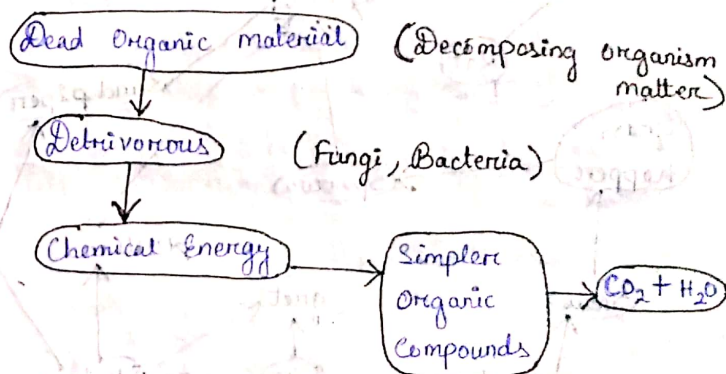 Dead Organic material
(Decomposing organism
matter)
Detrivorous
(Fungi, Bacteria)
Chemical Energy
Simpler
Organic
Compounds
CO₂ + H₂O